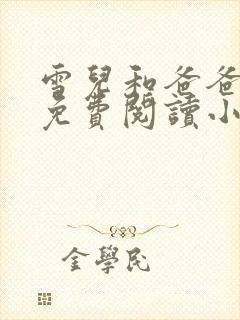 雪兒和爸爸
免費閱讀小
金學民